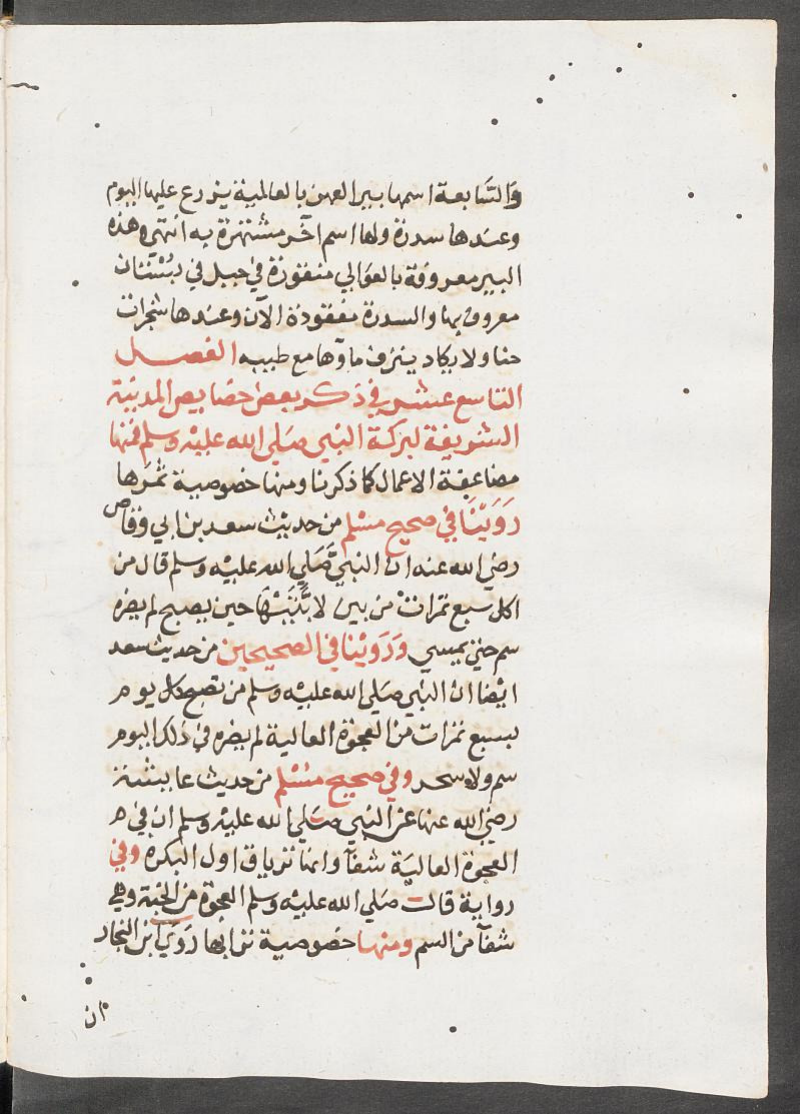 والسابعة اسمها بير العهن بالعالية يزرع عليها اليوم
وعندها سدرة ولها اسم اخر مشتهرة به انتهى هذه
البير معروفة بالعوالي منقورة في جبل في بستان
معروف بها والسدرة مفقودة الآن وعندها شجرات
حنا ولا يكاد ينزف ماؤها مع طيبه الفصل
التاسع عشر في ذكر بعض خصايص المدينة
الشريفة لبركة النبي صلي الله عليه وسلم فمنها
مضاعفة الاعمال كما ذكرنا ومنها خصوصية ثمرها
رَوَيْنَا في صحيح مسلم من حديث سعد بن ابي وقاص
رضي الله عنه ان النبي صلي الله عليه وسلم قال من
اكل سبع تمرات من بين لابتيها حين يصبح لم يضره
سم حتي يمسي وَرَوَيْنا في الصحيحين من حديث سعد
ايضا ان النبي صلي الله عليه وسلم من تصبح كل يوم
بسبع تمرات من العجوة العالية لم يضره في ذلك اليوم
سم ولا سحر وفي صحيح مسلم من حديث عايشة
رضي الله عنها عن النبي صلي الله عليه وسلم ان في
العجوة العالية شفآ وانها ترياق اول البكرة وفي
رواية قالت صلي الله عليه وسلم العجوة من الجنة وهي
شفآ من السم ومنها خصوصية ترابها رَوَي ابن النجار
ان